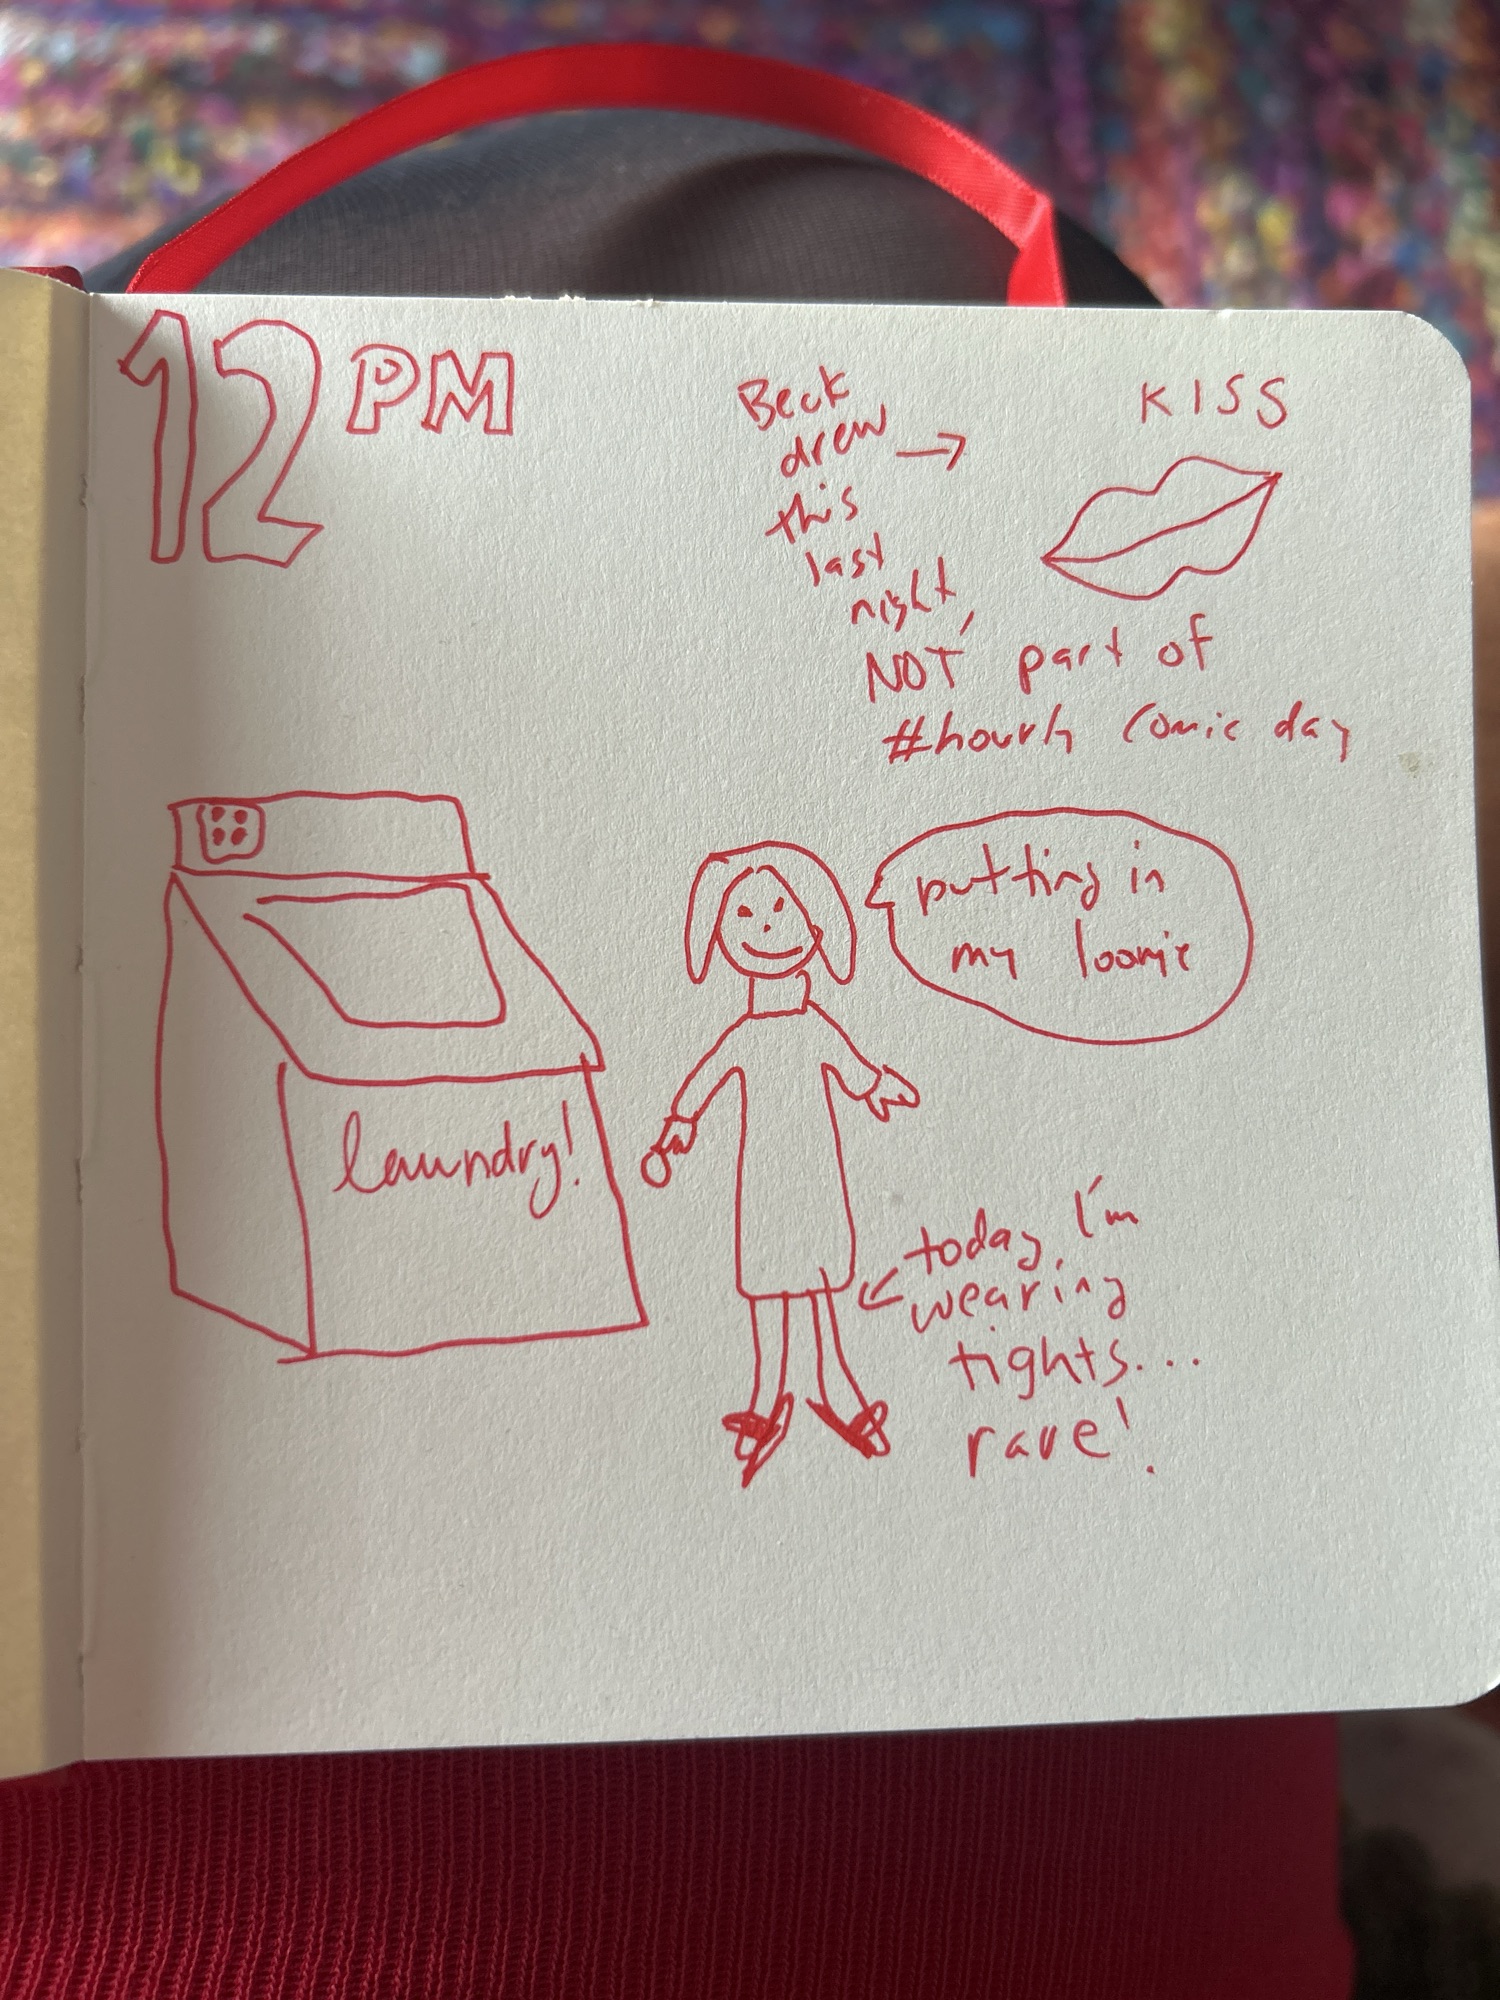 12 PM
Beck
drew →
this
last
night,
NOT part of
#hourly comic day
KISS
putting in
my loonie
laundry!
today, I'm
wearing
tights...
rare!